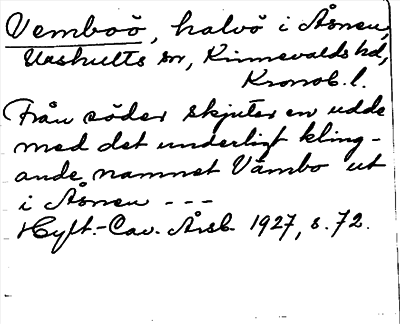 Vemboö, halvö i Åsnen,
Urshults sn, Kinnevalds hd,
Kronob. l.
Från söder skjuter en udde
med det underligt kling-
ande namnet Vämbo ut
i Åsnen - - -
Hylt.-Cav. Årsb. 1927, s. 72.